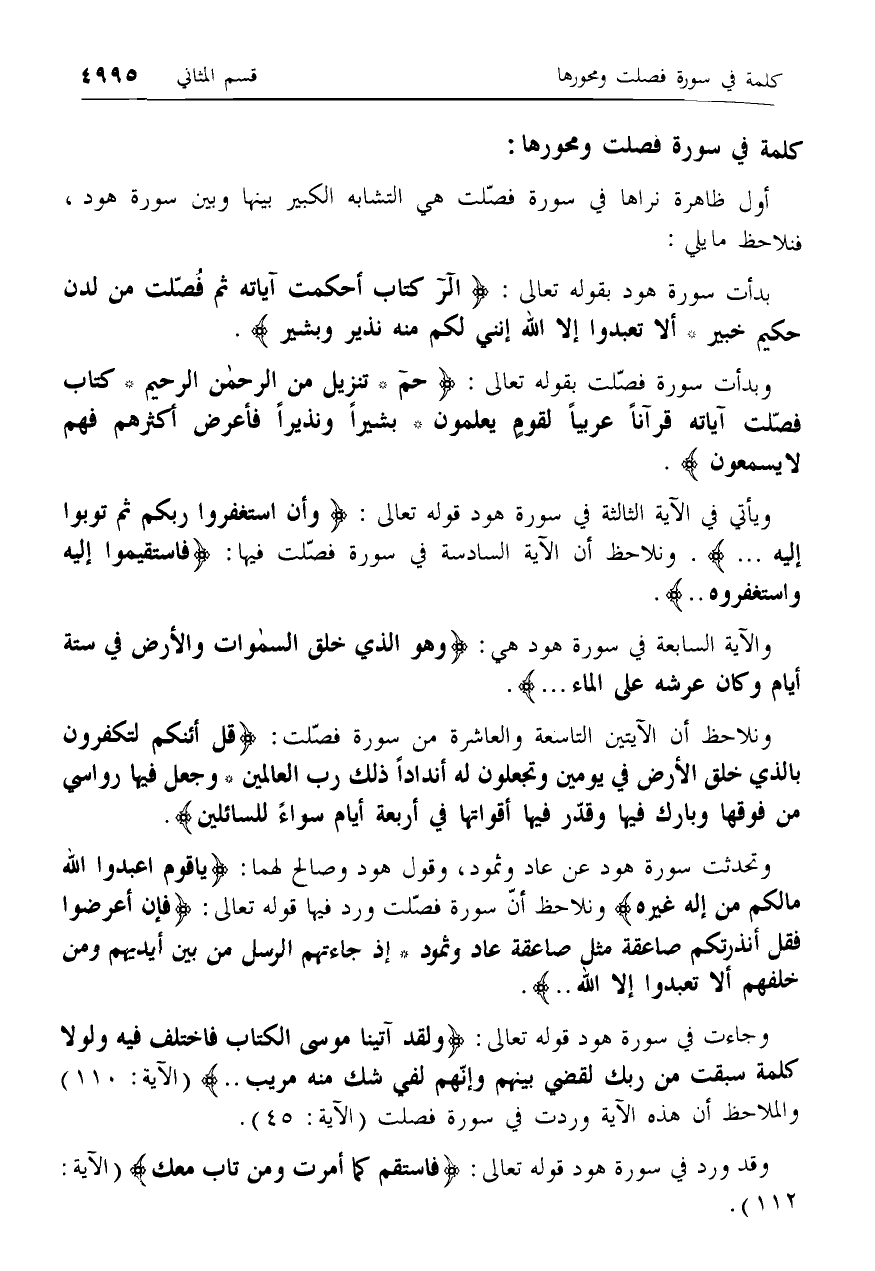 كلمة في سورة فصلت ومحورها قسم المثاني ٤٩٩٥
كلمة في سورة فصلت ومحورها :
أول ظاهرة نراها في سورة فصّلت هي التشابه الكبير بينها وبين سورة هود ،
فنلاحظ مايلي :
بدأت سورة هود بقوله تعالى : ﴿ الٓر كتاب أحكمت آياته ثم فُصّلت من لدن
حكيم خبير * ألا تعبدوا إلا الله إنني لكم منه نذير وبشير ﴾ .
وبدأت سورة فصّلت بقوله تعالى : ﴿ حمٓ * تنزيل من الرحمٰن الرحيم * كتاب
فصّلت آياته قرآناً عربياً لقومٍ يعلمون * بشيراً ونذيراً فأعرض أكثرهم فهم
لايسمعون ﴾ .
ويأتي في الآية الثالثة في سورة هود قوله تعالى : ﴿ وأن استغفروا ربكم ثم توبوا
إليه ... ﴾ . ونلاحظ أن الآية السادسة في سورة فصّلت فيها: ﴿فاستقيموا إليه
واستغفروه..﴾ .
والآية السابعة في سورة هود هي: ﴿وهو الذي خلق السمٰوات والأرض في ستة
أيام وكان عرشه على الماء ...﴾ .
ونلاحظ أن الآيتين التاسعة والعاشرة من سورة فصّلت: ﴿قل أئنكم لتكفرون
بالذي خلق الأرض في يومين وتجعلون له أنداداً ذلك رب العالمين * وجعل فيها رواسي
من فوقها وبارك فيها وقدّر فيها أقواتها في أربعة أيام سواءً للسائلين﴾ .
وتحدثت سورة هود عن عاد وثمود، وقول هود وصالح لهما: ﴿ياقوم اعبدوا الله
مالكم من إله غيره﴾ ونلاحظ أنّ سورة فصّلت ورد فيها قوله تعالى: ﴿فإن أعرضوا
فقل أنذرتكم صاعقة مثل صاعقة عاد وثمود * إذ جاءتهم الرسل من بين أيديهم ومن
خلفهم ألا تعبدوا إلا الله ..﴾ .
وجاءت في سورة هود قوله تعالى: ﴿ولقد آتينا موسى الكتاب فاختلف فيه ولولا
كلمة سبقت من ربك لقضي بينهم وإنّهم لفي شك منه مريب ..﴾ (الآية: ١١٠)
والملاحظ أن هذه الآية وردت في سورة فصلت (الآية: ٤٥).
وقد ورد في سورة هود قوله تعالى: ﴿فاستقم كما أمرت ومن تاب معك﴾ (الآية:
١١٢).